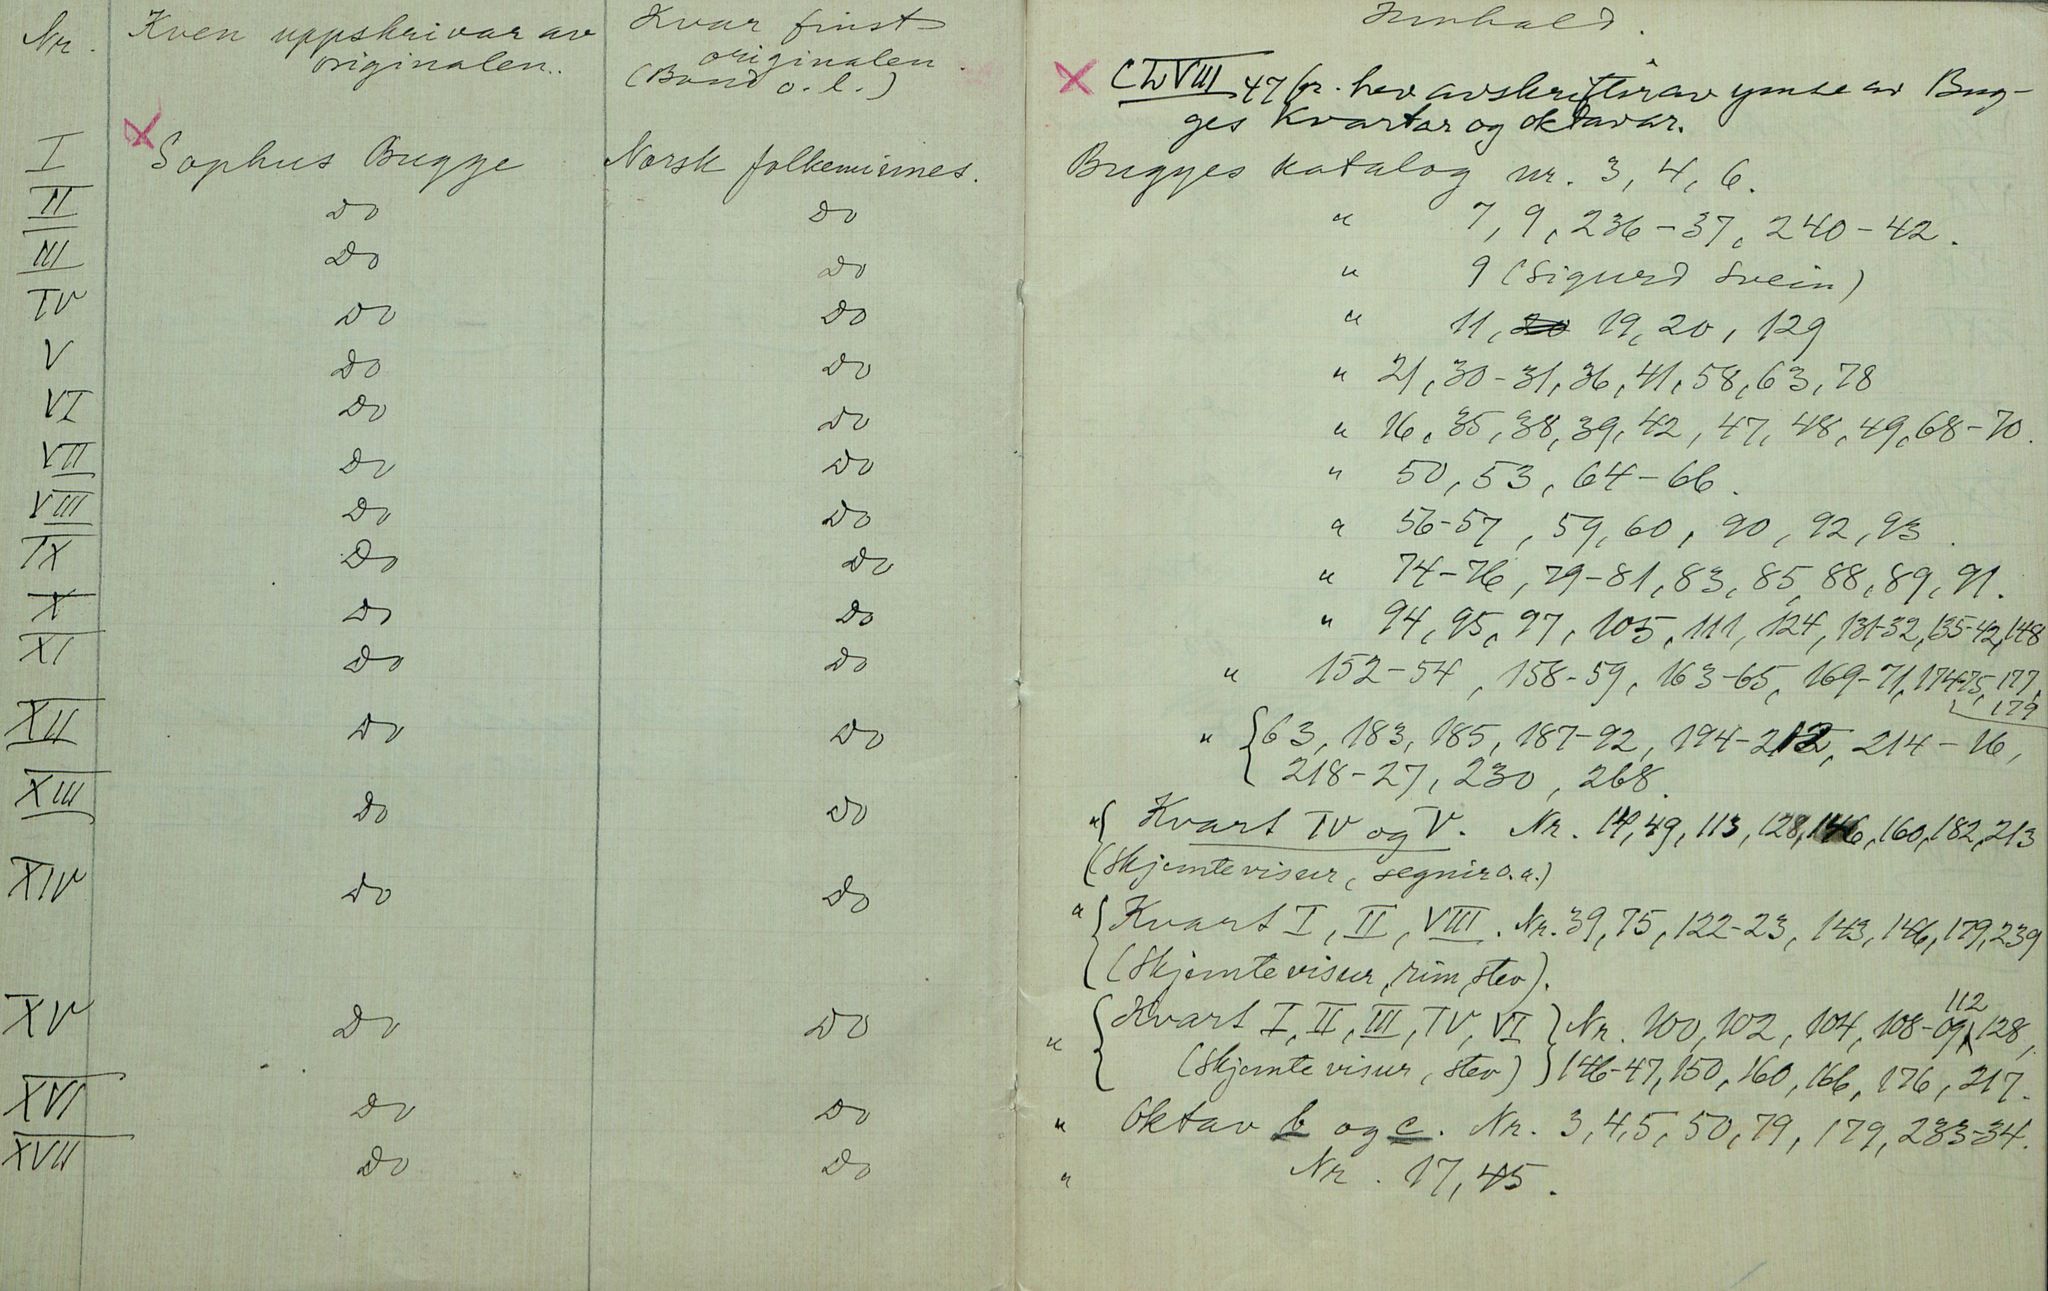 Nr. Kven uppskrivar av Kvar finst Innhald.
originalen. originalen
(Band o. l.)
X (LVIII 47 fr. hev avskriftir av ymse av Bug-
ges Kvartar og oktavar.
I X Sophus Bugge Norsk folkeminnes. Bugges katalog nr. 3, 4, 6.
II Do Do " 7, 9, 236-37, 240-42.
III Do Do " 9 (Sigurd Svein)
IV Do Do " 11, 20 19, 20, 129
V Do Do " 21, 30-31, 36, 41, 58, 63, 78
VI Do Do " 16, 35, 38, 39, 42, 47, 48, 49, 68-70.
VII Do Do " 50, 53, 64-66.
VIII Do Do " 56-57, 59, 60, 90, 92, 93.
IX Do Do " 74-76, 79-81, 83, 85, 88, 89, 91.
X Do Do " 94, 95, 97, 105, 111, 124, 131-32, 135-42, 148
XI Do Do " 152-54, 158-59, 163-65, 169-71, 174-75, 177,
179
XII Do Do " {63, 183, 185, 187-92, 194-212, 214-16,
218-27, 230, 268.
XIII Do Do " { Kvart IV og V. Nr. 14, 49, 113, 128, 146, 160, 182, 213
(Skjemtevisur, segnir o.a.)
XIV Do Do " { Kvart I, II, VIII. Nr. 39, 75, 122-23, 143, 146, 179, 239
(Skjemtevisur, rim, stev).
112
XV Do Do " { Kvart I, II, III, IV, VI } Nr. 100, 102, 104, 108-09, 128,
(Skjemtevisur, stev) } 146-47, 150, 160, 166, 176, 217.
XVI Do Do " Oktav b og c. Nr. 3, 4, 5, 50, 79, 179, 233-34.
XVII Do Do " Nr. 17, 45.